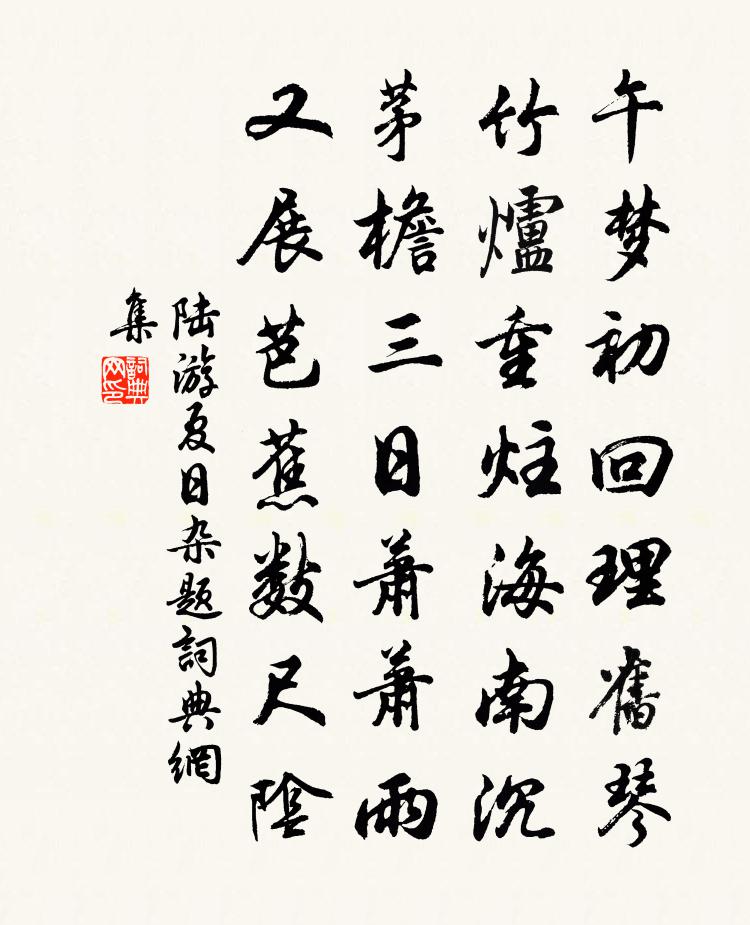 午梦初回理舊琴
竹爐重炷海南沉
茅檐三日蕭蕭雨
又展芭蕉數尺陰
陆游夏日杂题詞典網
集
詞典
网印